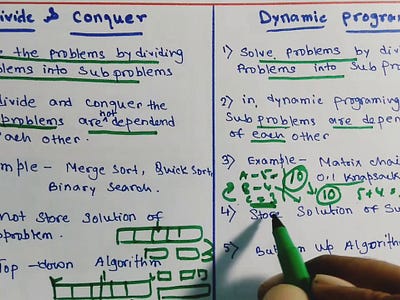 ivide & Conquer
e the problems by dividing
blems into Subproblems
divide and conquer the
problems are not dependend
each other.
ample - Merge Sort, Quick Sort,
Binary Search.
Not Store Solution of
bproblem.
Top-down Algorithm
Dynamic program
1) Solve problems by divi
Problems into Sub pro
2) in dynamic programing
Sub problems are depe
of each other
3) Example - Matrix chai
0.1 Knapsack
A-15-
B-4
10
10
5+4=
4) Store Solution of Su
5) Bu Up Algorith